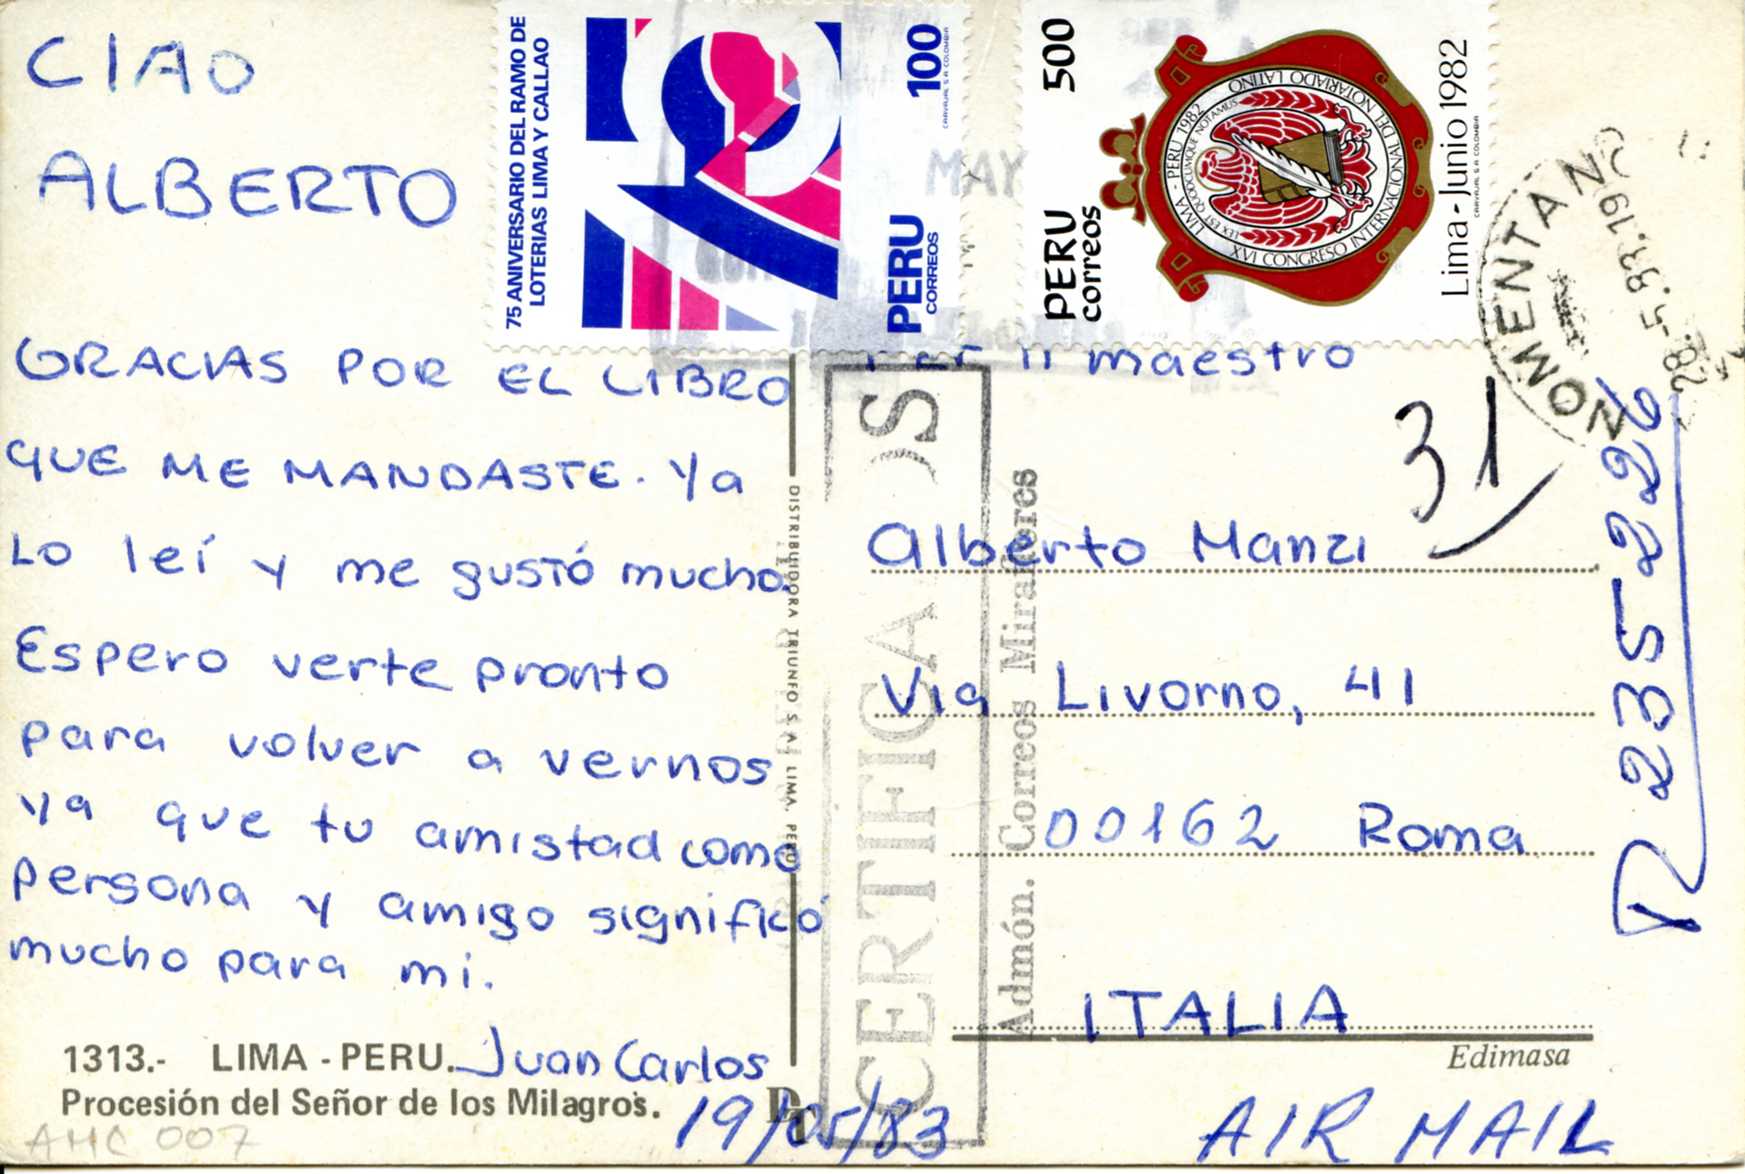 CIAO
ALBERTO
GRACIAS POR EL LIBRO
QUE ME MANDASTE. Ya
Lo leí y me gustó mucho.
Espero verte pronto
para volver a vernos
ya que tu amistad como
persona y amigo significó
mucho para mi.
Juan Carlos
19/05/83
1313.- LIMA - PERU.
Procesión del Señor de los Milagros.
AMC 007
75 ANIVERSARIO DEL RAMO DE
LOTERIAS LIMA Y CALLAO
PERU
CORREOS
100
CARVAJAL S.A. COLOMBIA
MAY
PERU
correos
500
XVI CONGRESO INTERNACIONAL DEL NOTARIADO LATINO
LIMA - PERU 1982
LEX EST QUODCUMQUE NOTAMUS
Lima - Junio 1982
CARVAJAL S.A. COLOMBIA
NOMENTANO
28.-5.83.19
DISTRIBUIDORA TRIUNFO S.A. LIMA, PERU
CERTIFICADOS
Admón. Correos Miraflores
Per il maestro
31
Alberto Manzi
Via Livorno, 41
00162 Roma
ITALIA
Edimasa
AIR MAIL
R 235226